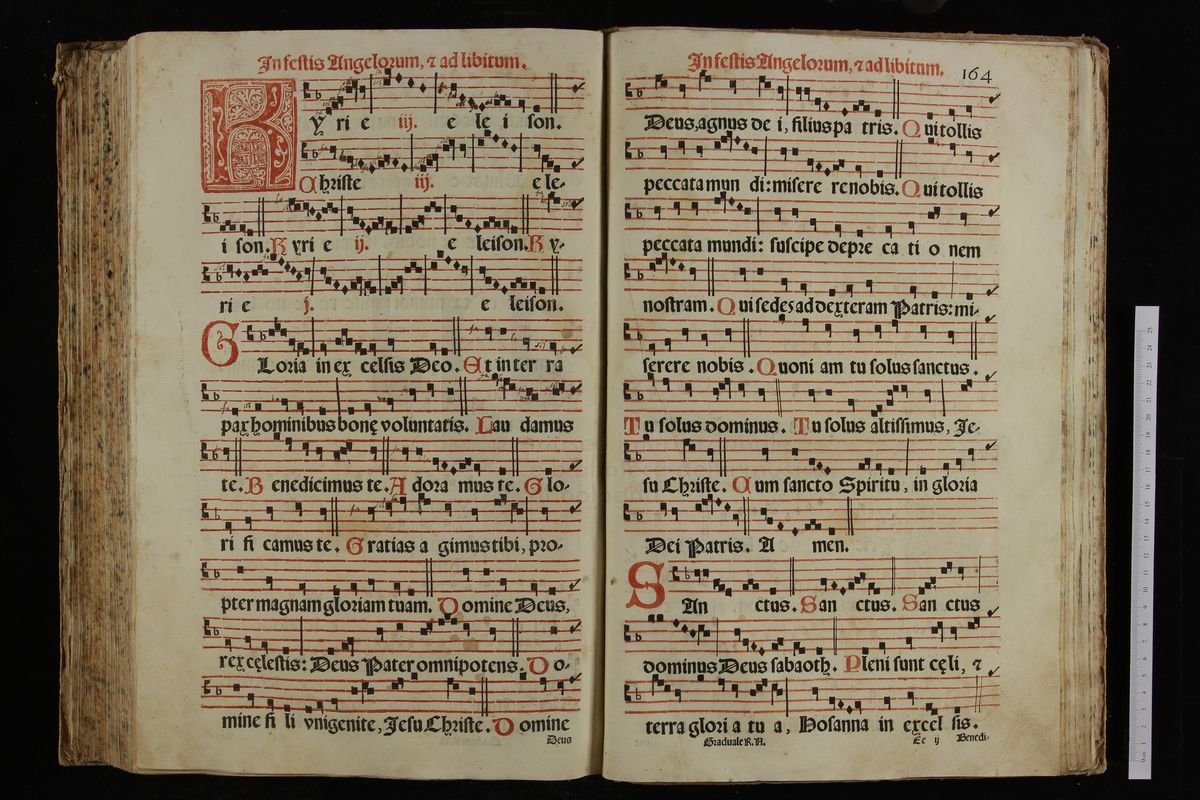 In festis Angelorum, ⁊ ad libitum.
Ky ri e iij. e le i son.
Christe iij. e le-
i son. Kyri e ij. e leison. Ky-
ri e j. e leison.
GLoria in ex celsis Deo. Et in ter ra
pax hominibus bonę voluntatis. Lau damus
te. B enedicimus te. A dora mus te. G lo-
ri fi camus te. G ratias a gimus tibi, pro-
pter magnam gloriam tuam. D omine Deus,
rex cęlestis: Deus Pater omnipotens. D o-
mine fi li vnigenite, Jesu Christe. D omine
Deus
In festis Angelorum, ⁊ ad libitum. 164
Deus, agnus de i, filius pa tris. Q ui tollis
peccata mun di: misere re nobis. Q ui tollis
peccata mundi: suscipe depre ca ti o nem
nostram. Q ui sedes ad dexteram Patris: mi-
serere nobis. Q uoni am tu solus sanctus.
Tu solus dominus. Tu solus altissimus, Je-
su Christe. C um sancto Spiritu, in gloria
Dei Patris. A men.
SAn ctus. San ctus. San ctus
dominus Deus sabaoth. Pleni sunt cęli, ⁊
terra glori a tu a, Hosanna in excel sis.
Graduale R.A. Ee ij Benedi-